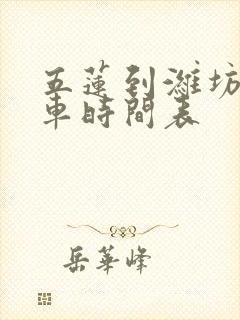 五蓮到濰坊
車時間表
岳華峰